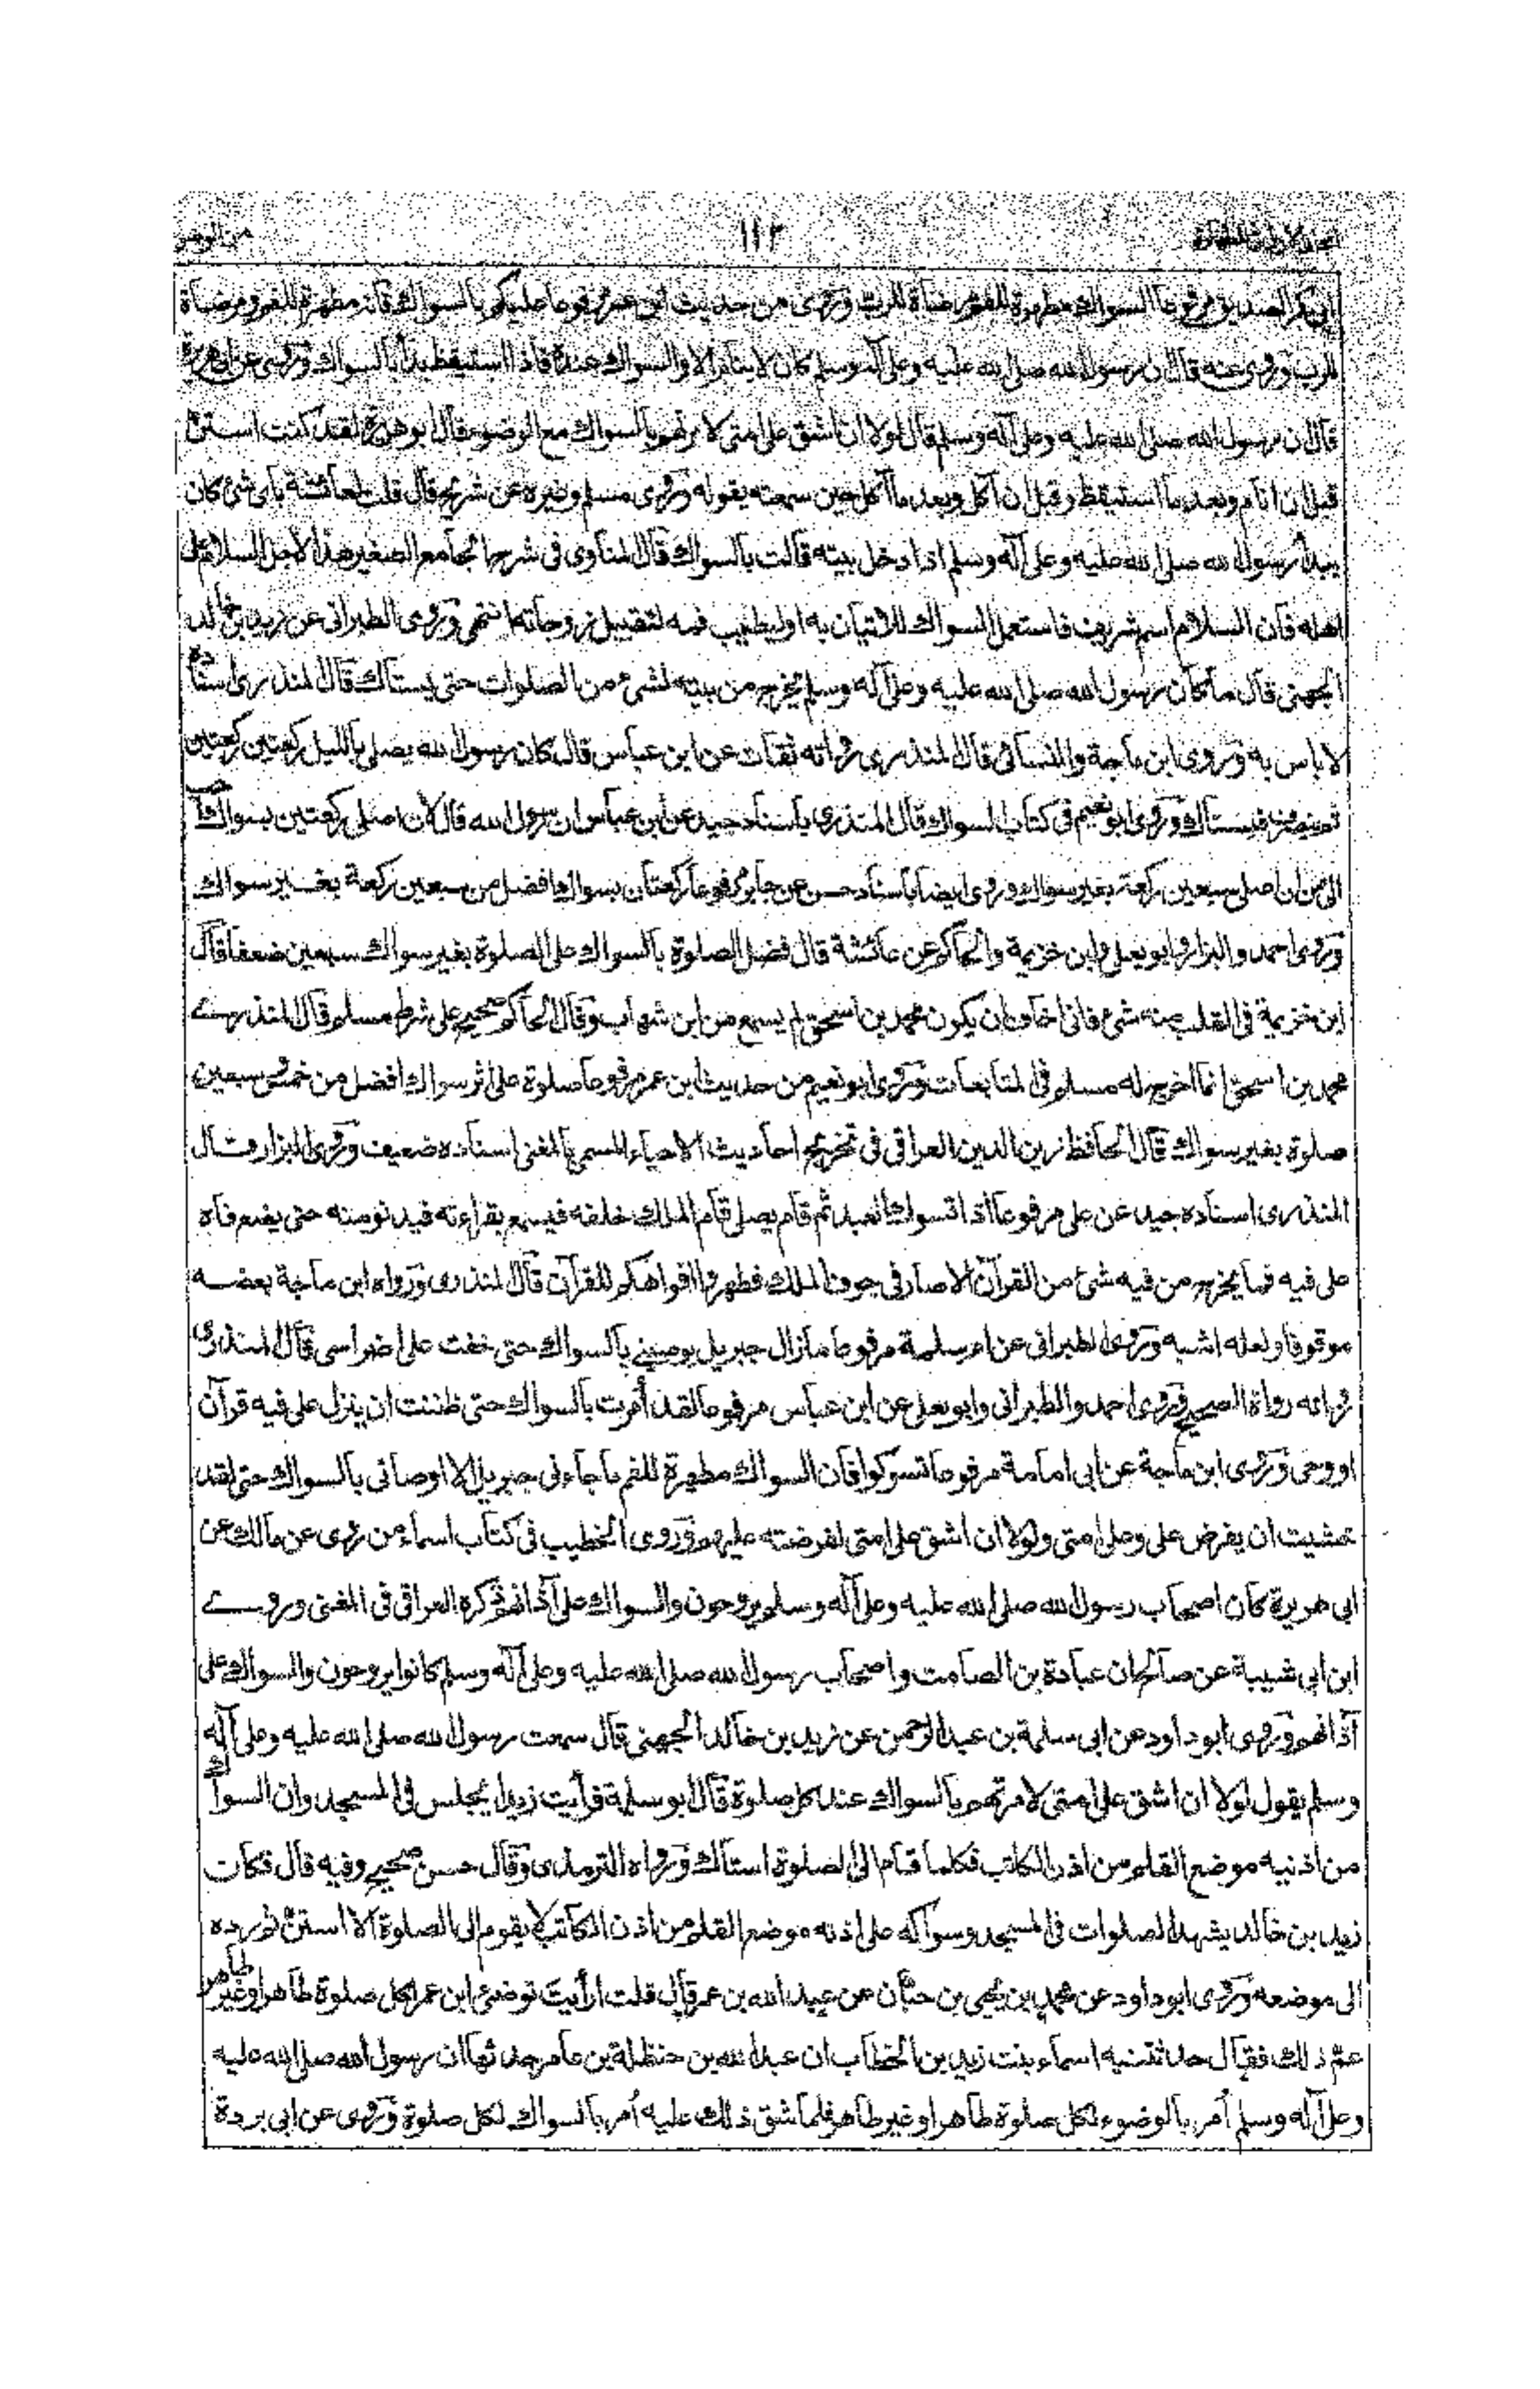 ١١٢
ابى بكر الصديق مرفوعا السواك مطهرة للفم مرضاة للرب وروى من حديث ابن عمر مرفوعا عليكم بالسواك فانه مطهرة للفم ومرضاة
للرب وروى عنه قال ان رسول الله صلى الله عليه وعلى آله وسلم كان لا ينام الا والسواك عنده فاذا استيقظ بدأ بالسواك وروى عن ابى هريرة
قال ان رسول الله صلى الله عليه وعلى آله وسلم قال لولا ان اشق على امتى لامرتهم بالسواك مع الوضوء قال ابو هريرة لقد كنت استن
قبل ان انام وبعد ما استيقظ وقبل ان آكل وبعد ما آكل حين سمعته يقوله وروى مسلم وغيره عن شريح قال قلت لعائشة باى شئ كان
يبدأ رسول الله صلى الله عليه وعلى آله وسلم اذا دخل بيته قالت بالسواك قال المناوى فى شرح الجامع الصغير هذا لاجل السلام على
اهله فان السلام اسم شريف فاستعمل السواك للاتيان به او ليطيب فمه لتقبيل زوجاته انتهى وروى الطبرانى عن زيد بن خالد
الجهنى قال ما كان رسول الله صلى الله عليه وعلى آله وسلم يخرج من بيته لشىء من الصلوات حتى يستاك قال المنذرى اسناده
لا باس به وروى ابن ماجة والنسائى قال المنذرى رواته ثقات عن ابن عباس قال كان رسول الله يصلى بالليل ركعتين ركعتين
ثم ينصرف فيستاك وروى ابو نعيم فى كتاب السواك قال المنذرى باسناد جيد عن ابن عباس ان رسول الله قال لان اصلى ركعتين بسواك احب
الى من ان اصلى سبعين ركعة بغير سواك وروى ايضا باسناد حسن عن جابر مرفوعا ركعتان بسواك افضل من سبعين ركعة بغير سواك
وروى احمد والبزار وابو يعلى وابن خزيمة والحاكم عن عائشة قال فضل الصلوة بالسواك على الصلوة بغير سواك سبعين ضعفا قال
ابن خزيمة فى القلب منه شىء فانى اخاف ان يكون محمد بن اسحق لم يسمع من ابن شهاب وقال الحاكم صحيح على شرط مسلم قال المنذرى
محمد بن اسحق انما اخرج له مسلم فى المتابعات وروى ابو نعيم من حديث ابن عمر مرفوعا صلوة على اثر سواك افضل من خمس وسبعين
صلوة بغير سواك قال الحافظ زين الدين العراقى فى تخريج احاديث الاحياء المسمى بالمغنى اسناده ضعيف وروى البزار وقال
المنذرى اسناده جيد عن على مرفوعا اذا تسوك العبد ثم قام يصلى قام الملك خلفه فيسمع بقراءته فيدنو منه حتى يضع فاه
على فيه فما يخرج من فيه شئ من القرآن الا صار فى جوف الملك فطهروا افواهكم للقرآن قال المنذرى ورواه ابن ماجة بعضه
موقوفا ولعله اشبه وروى الطبرانى عن ام سلمة مرفوعا ما زال جبريل يوصينى بالسواك حتى خفت على اضراسى قال المنذرى
رواته رواة الصحيح وروى احمد والطبرانى وابو يعلى عن ابن عباس مرفوعا لقد أمرت بالسواك حتى ظننت ان ينزل على فيه قرآن
او وحى وروى ابن ماجة عن ابى امامة مرفوعا تسوكوا فان السواك مطهرة للفم ما جاءنى جبريل الا اوصانى بالسواك حتى لقد
خشيت ان يفرض على وعلى امتى ولولا ان اشق على امتى لفرضته عليهم وروى الخطيب فى كتاب اسماء من روى عن مالك عن
ابى هريرة كان اصحاب رسول الله صلى الله عليه وعلى آله وسلم يروحون والسواك على آذانهم ذكره العراقى فى المغنى وروى
ابن ابى شيبة عن صالح ان عبادة بن الصامت واصحاب رسول الله صلى الله عليه وعلى آله وسلم كانوا يروحون والسواك على
آذانهم وروى ابو داود عن ابى سلمة بن عبد الرحمن عن زيد بن خالد الجهنى قال سمعت رسول الله صلى الله عليه وعلى آله
وسلم يقول لولا ان اشق على امتى لامرتهم بالسواك عند كل صلوة قال ابو سلمة فرأيت زيدا يجلس فى المسجد وان السواك
من اذنيه موضع القلم من اذن الكاتب فكلما قام الى الصلوة استاك ورواه الترمذى وقال حسن صحيح وفيه قال فكان
زيد بن خالد يشهد الصلوات فى المسجد وسواكه على اذنه موضع القلم من اذن الكاتب لا يقوم الى الصلوة الا استن ثم رده
الى موضعه وروى ابو داود عن محمد بن يحيى بن حبان عن عبيد الله بن عمر قال قلت ارأيت توضئ ابن عمر لكل صلوة طاهرا وغير طاهر
عم ذلك فقال حدثتنيه اسماء بنت زيد بن الخطاب ان عبد الله بن حنظلة بن عامر حدثها ان رسول الله صلى الله عليه
وعلى آله وسلم أمر بالوضوء لكل صلوة طاهرا وغير طاهر فلما شق ذلك عليه أمر بالسواك لكل صلوة وروى عن ابى بردة